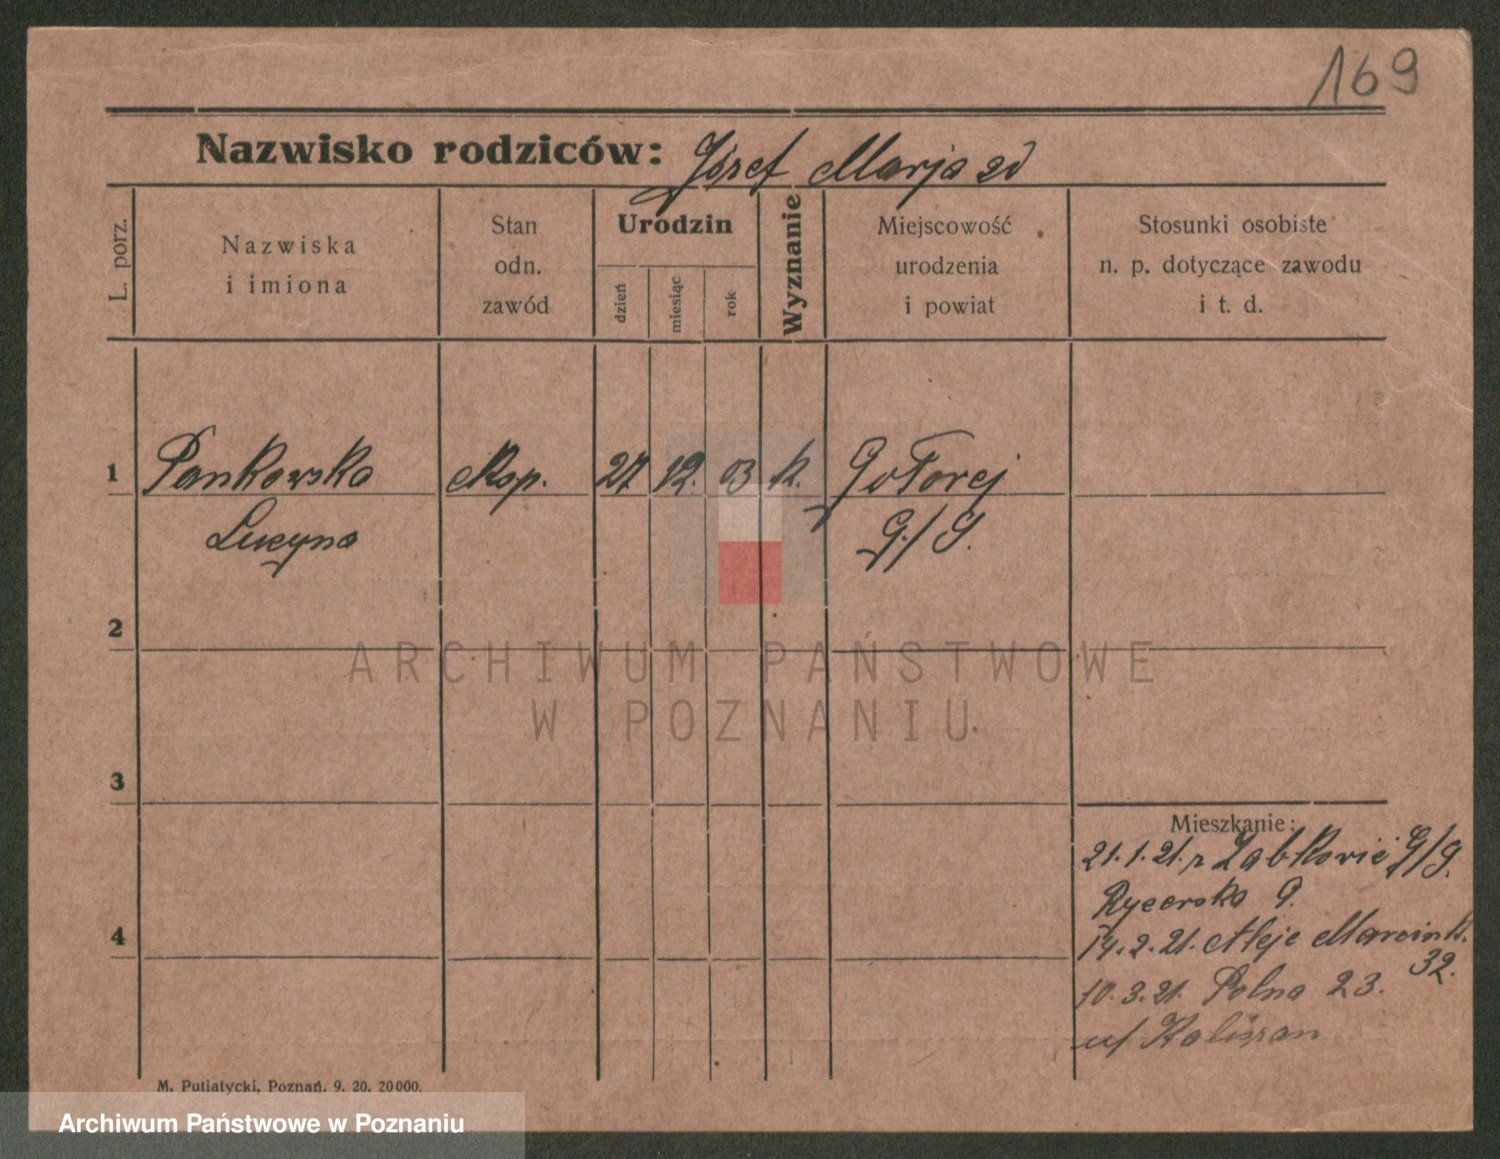 169
Nazwisko rodziców: Józef Marja
L. porz.
Nazwiska
i imiona
Stan
odn.
zawód
Urodzin
dzień
miesiąc
rok
Wyznanie
Miejscowość
urodzenia
i powiat
Stosunki osobiste
n. p. dotyczące zawodu
i t. d.
1
Pankowska
27 12. 03 k.
Lucyna
G./S.
2
ARCHIWUM PAŃSTWOWE
W POZNANIU
3
Mieszkanie:
21.1.21.
Rycerska 9.
4
14.2.21. Aleje Marcink.
32.
10.3.21. Polna 23.
M. Putiatycki, Poznań. 9. 20. 20000.
Archiwum Państwowe w Poznaniu